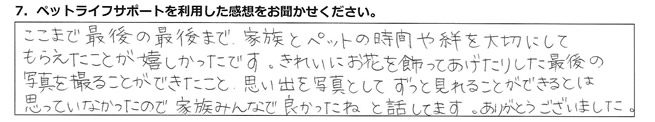 7．ペットライフサポートを利用した感想をお聞かせください。
ここまで最後の最後まで、家族とペットの時間や絆を大切にして
もらえたことが嬉しかったです。きれいにお花を飾ってあげたりした最後の
写真を撮ることができたこと、思い出を写真としてずっと見れることができるとは
思っていなかったので家族みんなで良かったねと話してます。ありがとうございました。